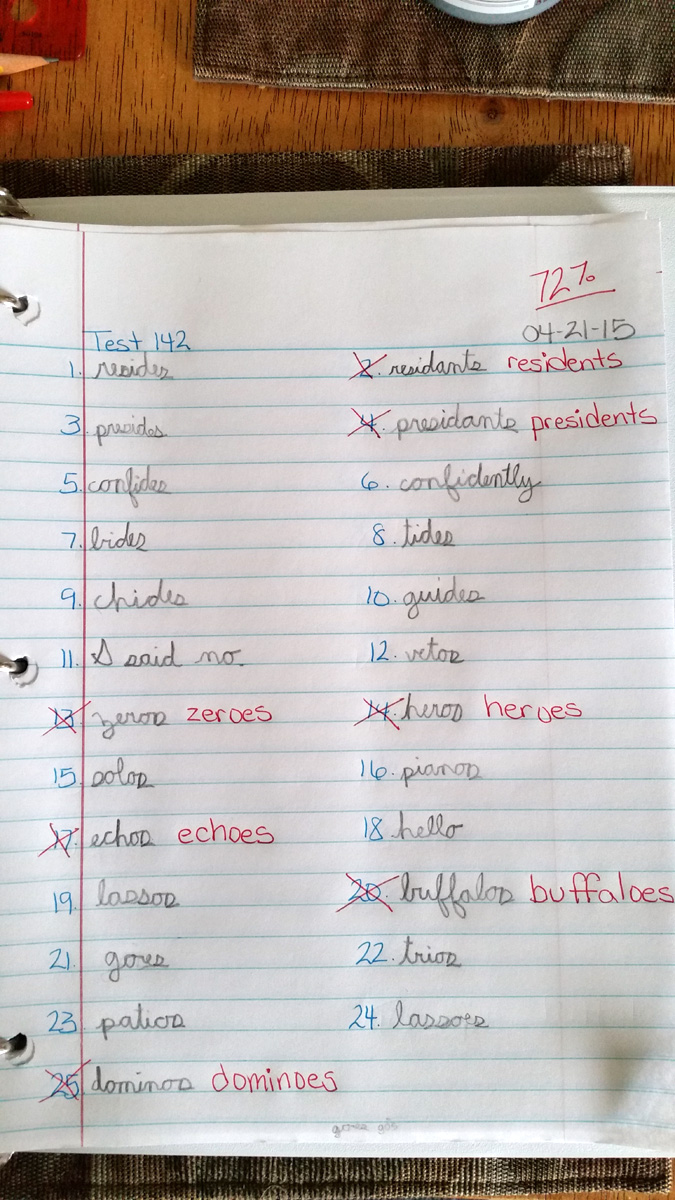 72%
04-21-15
Test 142
1. resides 2. residants residents
3. presides 4. presidants presidents
5. confides 6. confidently
7. bides 8. tides
9. chides 10. guides
11. I said no. 12. vetos
13. zeros zeroes 14. heros heroes
15. solos 16. pianos
17. echos echoes 18. hello
19. lassos 20. buffalos buffaloes
21. goes 22. trios
23. patios 24. lassoes
25. dominos dominoes